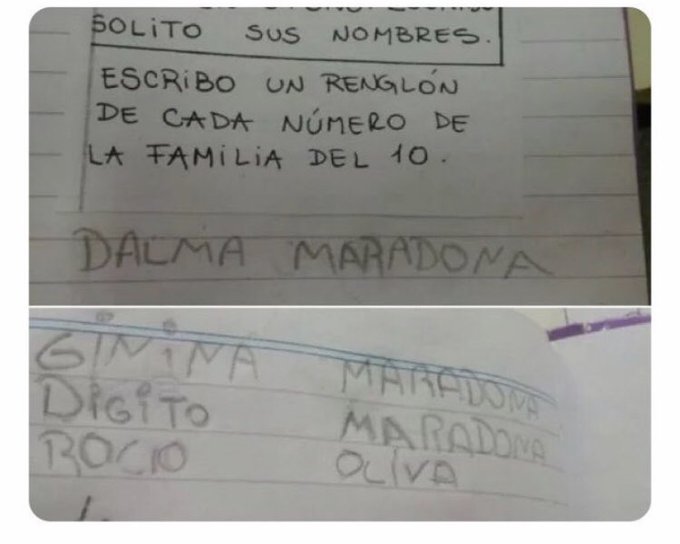 SOLITO SUS NOMBRES.
ESCRIBO UN RENGLÓN
DE CADA NÚMERO DE
LA FAMILIA DEL 10.
DALMA MARADONA
GINiNA MARADONA
DiGiTO MARADONA
ROCIO OLIVA